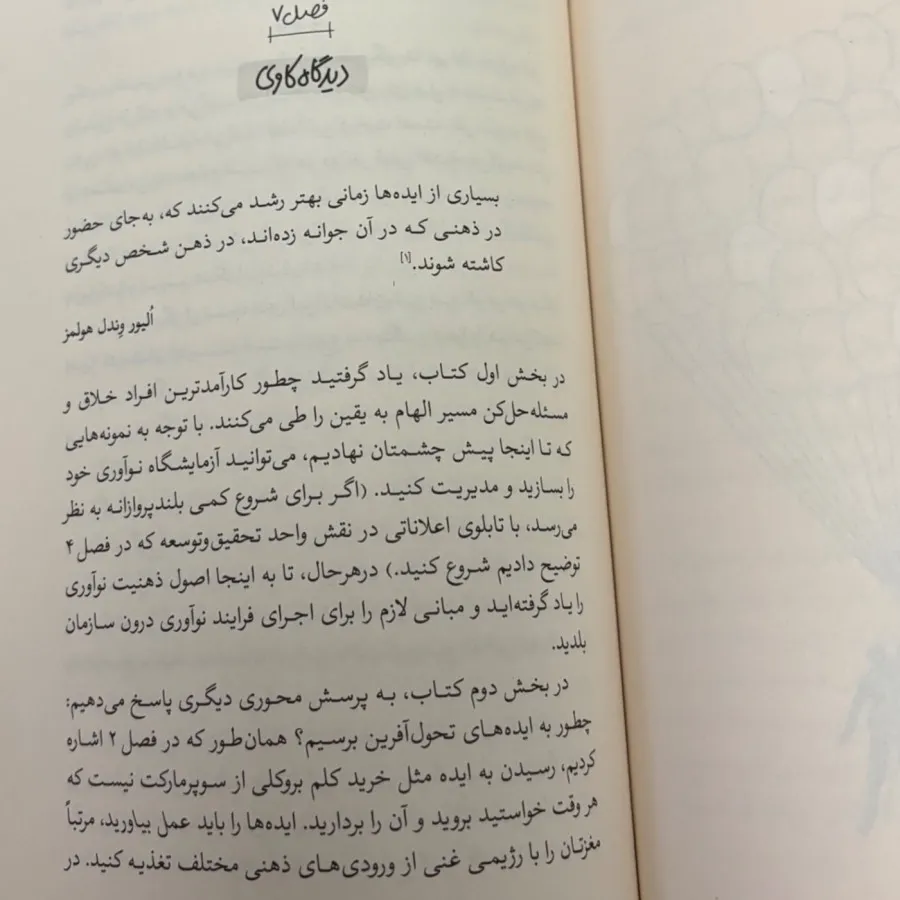 فصل ۷
دیدگاه‌کاوی
بسیاری از ایده‌ها زمانی بهتر رشد می‌کنند که، به‌جای حضور
در ذهنی که در آن جوانه زده‌اند، در ذهن شخص دیگری
کاشته شوند.[۱]
اُلیور وِندل هولمز
در بخش اول کتاب، یاد گرفتید چطور کارآمدترین افراد خلاق و
مسئله‌حل‌کن مسیر الهام به یقین را طی می‌کنند. با توجه به نمونه‌هایی
که تا اینجا پیش چشمتان نهادیم، می‌توانید آزمایشگاه نوآوری خود
را بسازید و مدیریت کنید. (اگر برای شروع کمی بلندپروازانه به نظر
می‌رسد، با تابلوی اعلاناتی در نقش واحد تحقیق‌وتوسعه که در فصل ۴
توضیح دادیم شروع کنید.) درهرحال، تا به اینجا اصول ذهنیت نوآوری
را یاد گرفته‌اید و مبانی لازم را برای اجرای فرایند نوآوری درون سازمان
بلدید.
در بخش دوم کتاب، به پرسش محوری دیگری پاسخ می‌دهیم:
چطور به ایده‌های تحول‌آفرین برسیم؟ همان‌طور که در فصل ۲ اشاره
کردیم، رسیدن به ایده مثل خرید کلم بروکلی از سوپرمارکت نیست که
هر وقت خواستید بروید و آن را بردارید. ایده‌ها را باید عمل بیاورید، مرتباً
مغزتان را با رژیمی غنی از ورودی‌های ذهنی مختلف تغذیه کنید. در